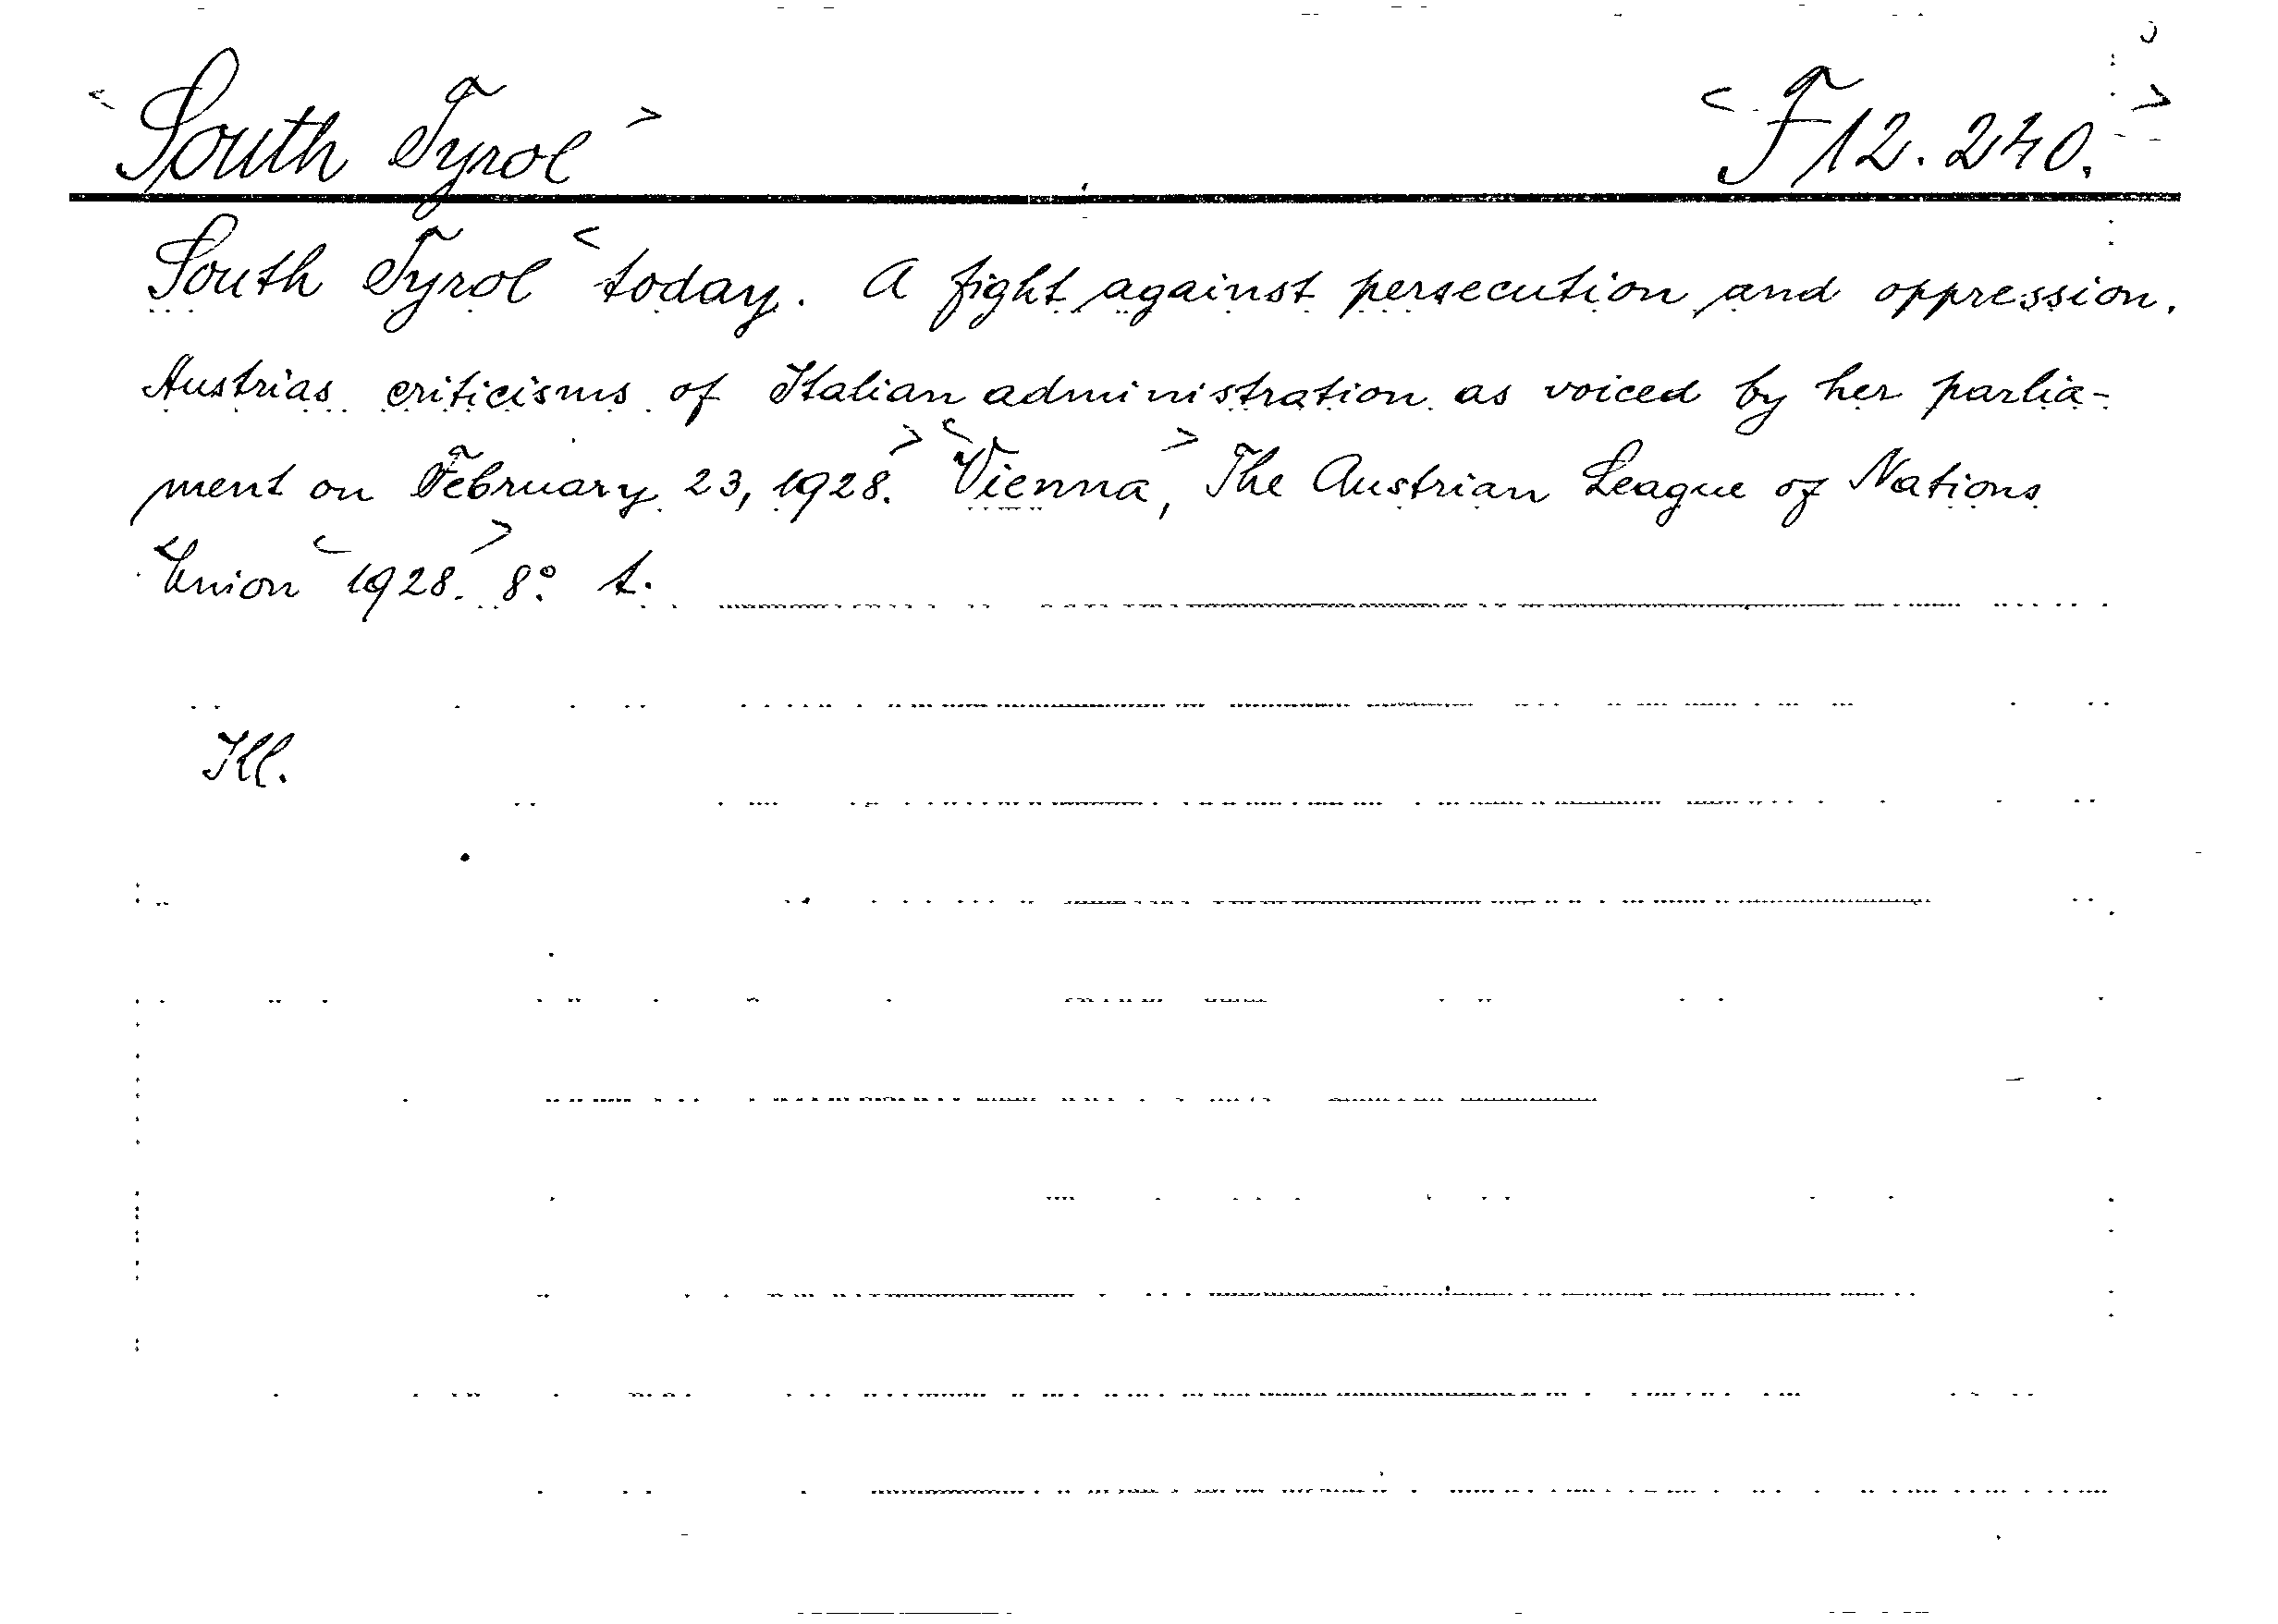 <South Tyrol> <F 12.240.>
South Tyrol <today. A fight against persecution and oppression.
Austrias criticisms of Italian administration as voiced by her parlia-
ment on February 23, 1928.> <Vienna>, The Austrian League of Nations
<Union <1928.> 8° t.
Kl.